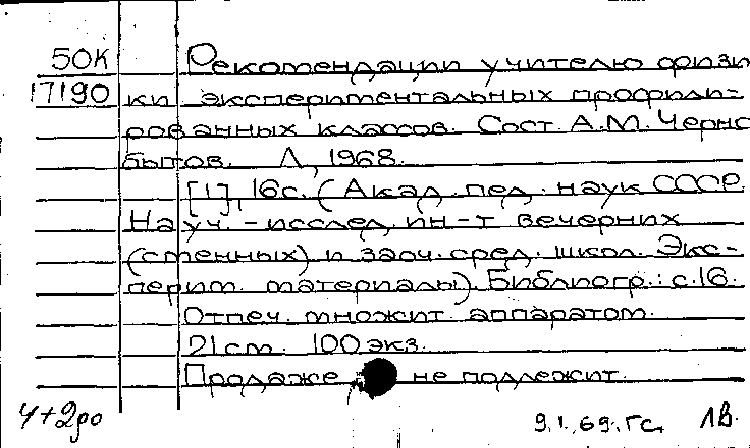 50К Рекомендации учителю физи
17190 ки экспериментальных профили-
рованных классов. Сост. А.М. Черно
бытов. Л, 1968.
[1], 16с. (Акад. пед. наук СССР.
Науч.-исслед. ин-т вечерних
(сменных) и заоч. сред. школ. Экс-
перим. материалы). Библиогр.: с.16.
Отпеч. множит. аппаратом.
21см. 100 экз.
Продаже не подлежит.
9.1.69. гс. ЛВ.